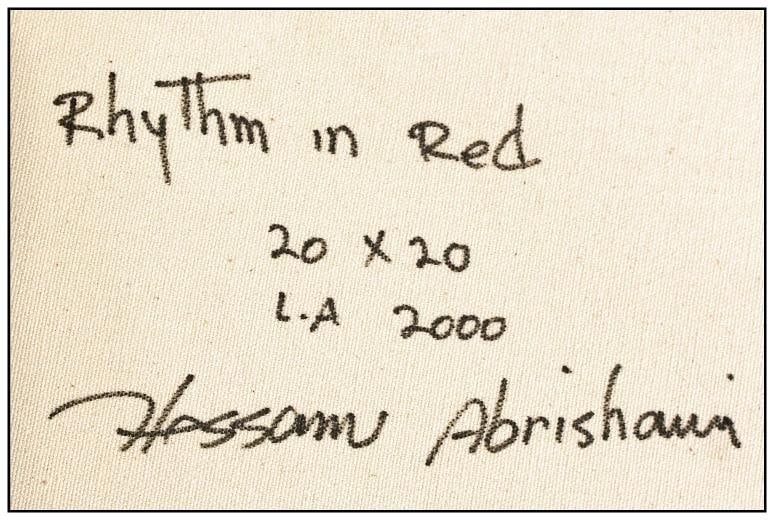 Rhythm in Red
20 x 20
L.A 2000
Hossam Abrishami